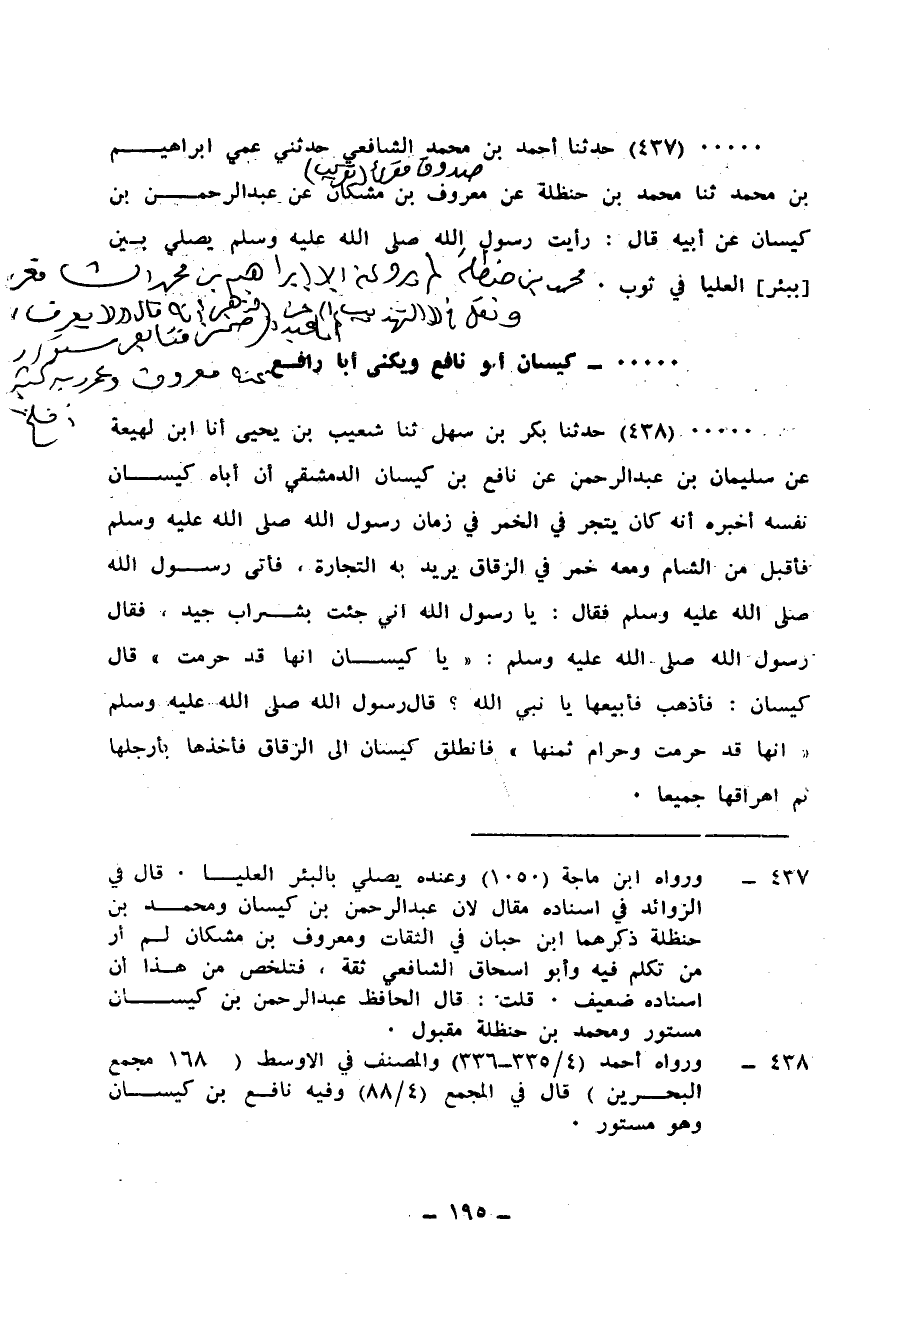 ٠٠٠٠٠ (٤٣٧) حدثنا أحمد بن محمد الشافعي حدثني عمي ابراهيـــــم
صدوق (تقريب)
بن محمد ثنا محمد بن حنظلة عن معروف بن مشكان عن عبدالرحمـــــن بن
كيسان عن أبيه قال : رأيت رسول الله صلى الله عليه وسلم يصلي بـين
[ببئر] العليا في ثوب ٠
محمد بن حنظلة لم يرو عنه الا ابراهيم بن محمد
٠٠٠٠٠ ـ كيسان أبو نافع ويكنى أبا رافـع
٠٠٠٠٠ (٤٣٨) حدثنا بكر بن سهل ثنا شعيب بن يحيى أنا ابن لهيعة
عن سليمان بن عبدالرحمن عن نافع بن كيسان الدمشقي أن أباه كيســـان
نفسه أخبره أنه كان يتجر في الخمر في زمان رسول الله صلى الله عليه وسلم
فأقبل من الشام ومعه خمر في الزقاق يريد به التجارة ، فأتى رســـول الله
صلى الله عليه وسلم فقال : يا رسول الله اني جئت بشـــراب جيد ، فقال
رسول الله صلى الله عليه وسلم : « يا كيســـان انها قد حرمت » قال
كيسان : فأذهب فأبيعها يا نبي الله ؟ قال رسول الله صلى الله عليه وسلم
« انها قد حرمت وحرام ثمنها » فانطلق كيسان الى الزقاق فأخذها بأرجلها
ثم اهراقها جميعا ٠
٤٣٧ ـ ورواه ابن ماجة (١٠٥٠) وعنده يصلي بالبئر العليـــا ٠ قال في
الزوائد في اسناده مقال لان عبدالرحمن بن كيسان ومحمـــد بن
حنظلة ذكرهما ابن حبان في الثقات ومعروف بن مشكان لـــم أر
من تكلم فيه وأبو اسحاق الشافعي ثقة ، فتلخص من هـــذا أن
اسناده ضعيف ٠ قلت : قال الحافظ عبدالرحمن بن كيســـــان
مستور ومحمد بن حنظلة مقبول ٠
٤٣٨ ـ ورواه أحمد (٤/٣٣٥ـ٣٣٦) والمصنف في الاوسط ( ١٦٨ مجمع
البحـــرين ) قال في المجمع (٤/٨٨) وفيه نافـــع بن كيســـان
وهو مستور ٠
ـ ١٩٥ ـ